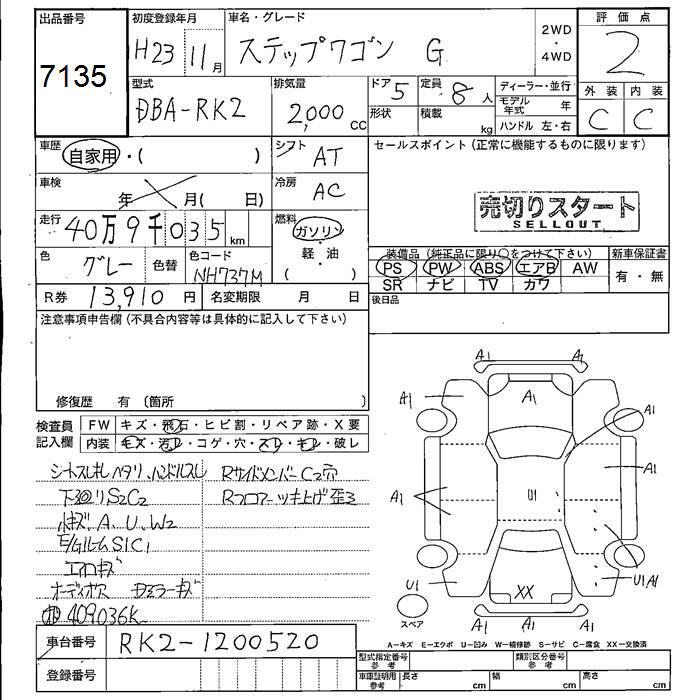 出品番号
7135
初度登録年月
H23 11月
車名・グレード
ステップワゴン G
2WD
・
4WD
評価点
2
型式
DBA-RK2
排気量
2,000 cc
ドア 5
形状
定員 8 人
積載 kg
ディーラー・並行
モデル年式 年
ハンドル 左・右
外装 内装
C C
車歴
自家用・( )
シフト AT
車検
年 月( 日)
冷房 AC
走行
40万9千035 km
燃料
ガソリン
・
軽・油
( )
色
グレー
色替
色コード
NH737M
R券 13,910 円
名変期限 月 日
セールスポイント(正常に機能するものに限ります)
売切りスタート
SELLOUT
装備品(純正品に限り○をつけて下さい)
PS PW ABS エアB AW
SR ナビ TV カワ
新車保証書
有・無
後日品
注意事項申告欄(不具合内容等は具体的に記入して下さい)
修復歴 有(箇所 )
検査員
記入欄
FW キズ・飛石・ヒビ割・リペア跡・X要
内装 キズ・汚レ・コゲ・穴・スレ・キレ・破レ
シートスレ
ハンドルスレ
下廻りS2C2
A、U、W2
S1C1
エアロキズ
オーディオ
409036K
RサイドメンバーC2穴
Rフロアーツキ上げ歪ミ
A1 A2
A1 A1 A1
A1 A1
U1
U1 XX U1 A1
スペア
A1 A1 A1
A-キズ E-エクボ U-凹み W-補修跡 S-サビ C-腐食 XX-交換済
車台番号 RK2-1200520
登録番号
型式指定番号
参考
類別区分番号
参考
車庫証明用
参考
長さ cm
幅 cm
高さ cm